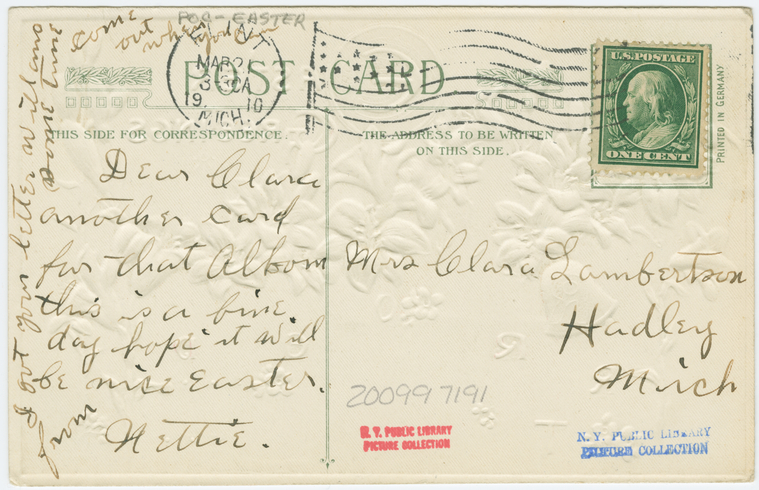 POC-EASTER
come
out when you can
FLINT
MAR 21
3 30A
1910
MICH.
POST CARD
U.S. POSTAGE
ONE CENT
PRINTED IN GERMANY
THIS SIDE FOR CORRESPONDENCE.
THE ADDRESS TO BE WRITTEN
ON THIS SIDE.
Dear Clara
another card
for that Albom
this is a fine
day hope it will
be nice Easter.
from Nettie.
I got your letter will ans
some time
Mrs Clara Lambertson
Hadley
Mich
200997191
N. Y. PUBLIC LIBRARY
PICTURE COLLECTION
N. Y. PUBLIC LIBRARY
PICTURE COLLECTION